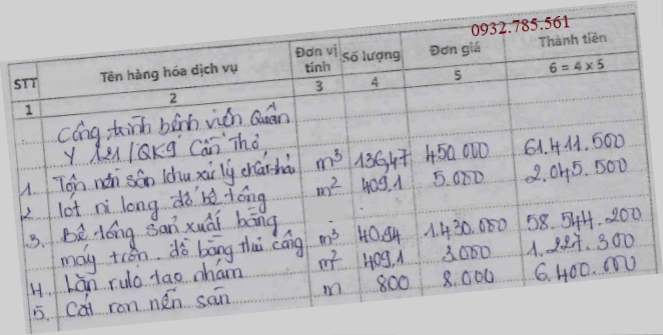 0932.785.561
STT Tên hàng hóa dịch vụ Đơn vị tính Số lượng Đơn giá Thành tiền
1 2 3 4 5 6 = 4 x 5
Công trình bệnh viện Quân
Y 121/QK9 Cần Thơ,
1. Tôn nền sân khu xử lý chất thải m³ 136,47 450.000 61.411.500
2 lót ni long đổ bê tông m² 409,1 5.000 2.045.500
3. Bê tông sản xuất bằng
máy trộn đổ bằng thủ công m³ 40.94 1.430.000 58.544.200
4. Lăn rulo tạo nhám m² 409,1 3.000 1.227.300
5. Cắt ron nền sân m 800 8.000 6.400.000